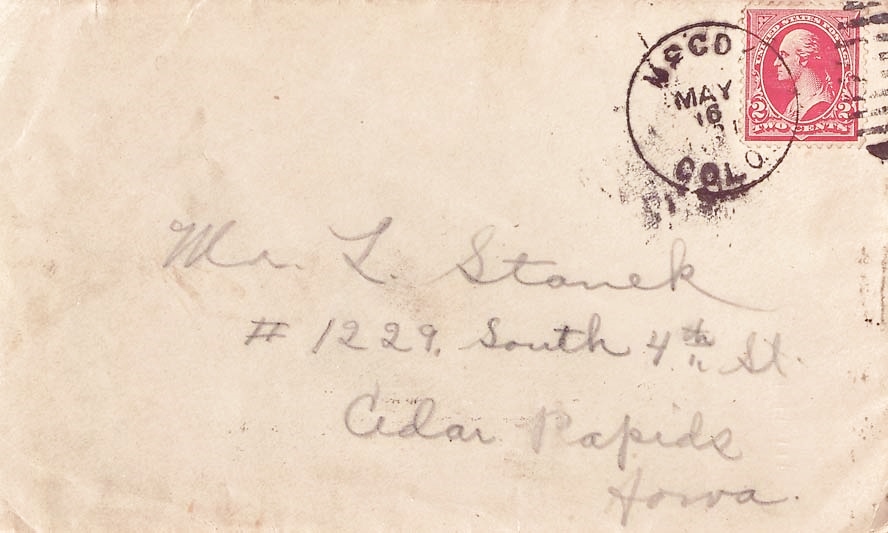 McCOY
MAY
16
COLO.
UNITED STATES POSTAGE
2 2
TWO CENTS
Mr. L. Stanek
# 1229. South 4th St.
Cedar Rapids
Iowa.